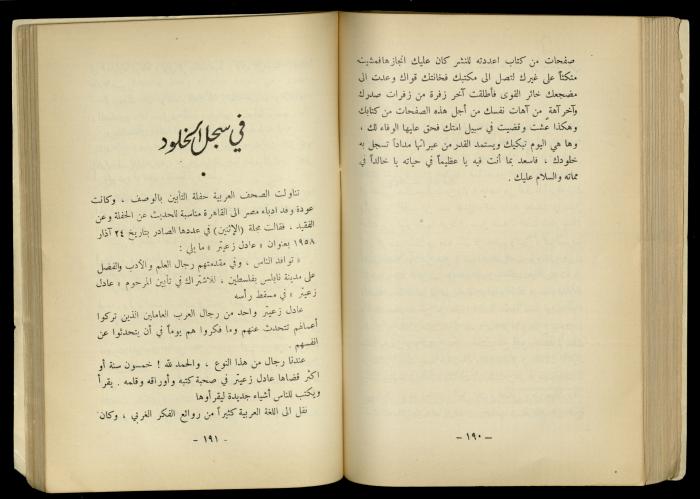 صفحات من كتاب اعددته للنشر كان عليك انجازها فمشيت
متكئاً على غيرك لتصل الى مكتبك فخانتك قواك وعدت الى
مضجعك خائر القوى فأطلقت آخر زفرة من زفرات صدرك
وآخر آهة من آهات نفسك من أجل هذه الصفحات من كتابك
وهكذا عشت وقضيت في سبيل امتك فحق عليها الوفاء لك ،
وها هي اليوم تبكيك ويستمد القدر من عبراتها مداداً تسجل به
خلودك ، فاسعد بما أنت فيه يا عظيماً في حياته يا خالداً في
مماته والسلام عليك .
– ١٩٠ –
في سجل الخلود
تناولت الصحف العربية حفلة التأبين بالوصف ، وكانت
عودة وفد ادباء مصر الى القاهرة مناسبة للحديث عن الحفلة وعن
الفقيد . فقالت مجلة (الإثنين) في عددها الصادر بتاريخ ٢٤ آذار
١٩٥٨ بعنوان « عادل زعيتر » ما يلي :
« توافد الناس ، وفي مقدمتهم رجال العلم والأدب والفضل
على مدينة نابلس بفلسطين ، للاشتراك في تأبين المرحوم « عادل
زعيتر » في مسقط رأسه
عادل زعيتر واحد من رجال العرب العاملين الذين تركوا
أعمالهم تتحدث عنهم وما فكروا هم يوماً في أن يتحدثوا عن
انفسهم .
عندنا رجال من هذا النوع ، والحمد لله ! خمسون سنة أو
اكثر قضاها عادل زعيتر في صحبة كتبه وأوراقه وقلمه . يقرأ
ويكتب للناس أشياء جديدة ليقرأوها
نقل الى اللغة العربية كثيراً من روائع الفكر الغربي ، وكان
– ١٩١ –